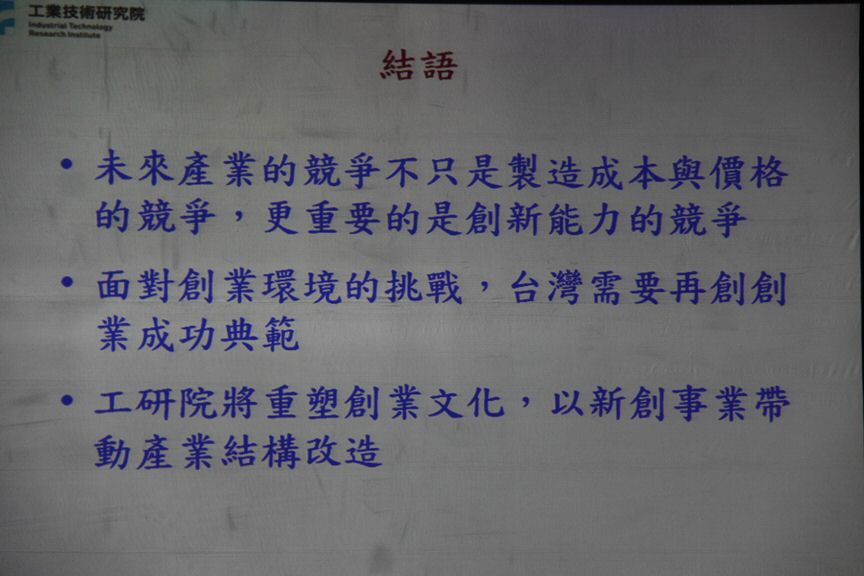 工業技術研究院
Industrial Technology
Research Institute
結語
• 未來產業的競爭不只是製造成本與價格
的競爭，更重要的是創新能力的競爭
• 面對創業環境的挑戰，台灣需要再創創
業成功典範
• 工研院將重塑創業文化，以新創事業帶
動產業結構改造